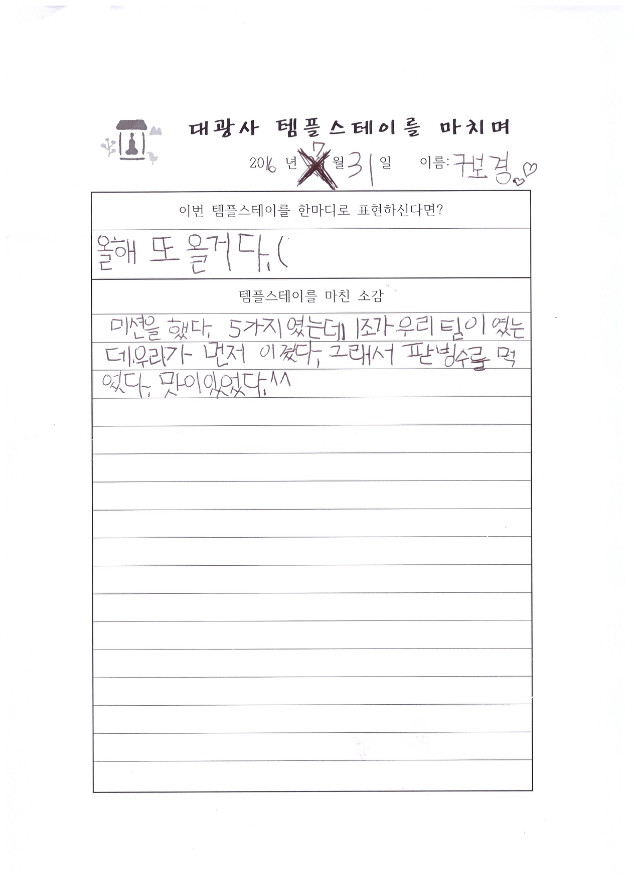 대광사 템플스테이를 마치며
2016 년 7 월 31 일 이름: 구보경
이번 템플스테이를 한마디로 표현하신다면?
올해 또 올거다.(
템플스테이를 마친 소감
미션을 했다. 5가지였는데 1조가 우리 팀이 였는
데 우리가 먼저 이겼다. 그래서 팥빙수를 먹
었다. 맛이있었다.^^